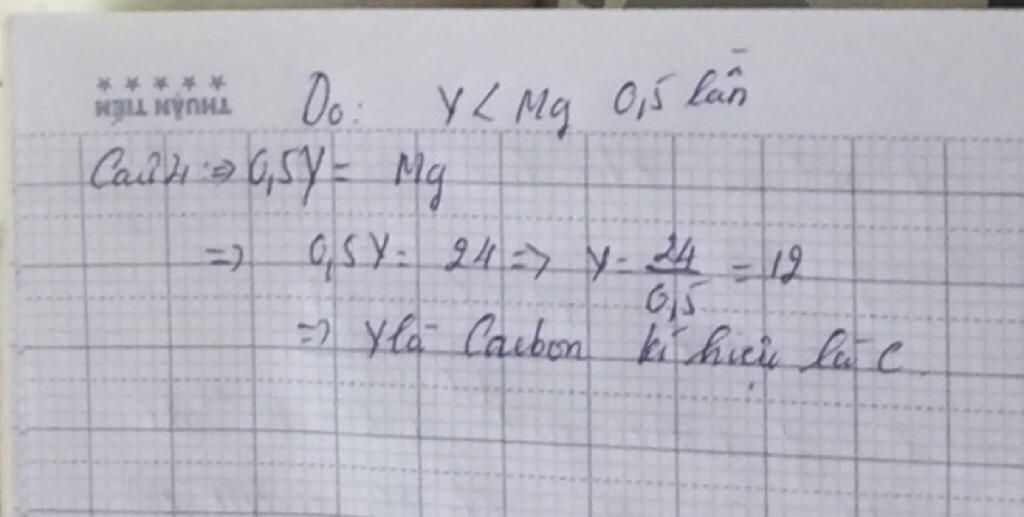 THUẬN TIẾN
Do: Y < Mg 0,5 lần
Câu 24 => 0,5Y = Mg
=> 0,5Y = 24 => Y = 24/0,5 = 12
=> Y là Cacbon kí hiệu là C.